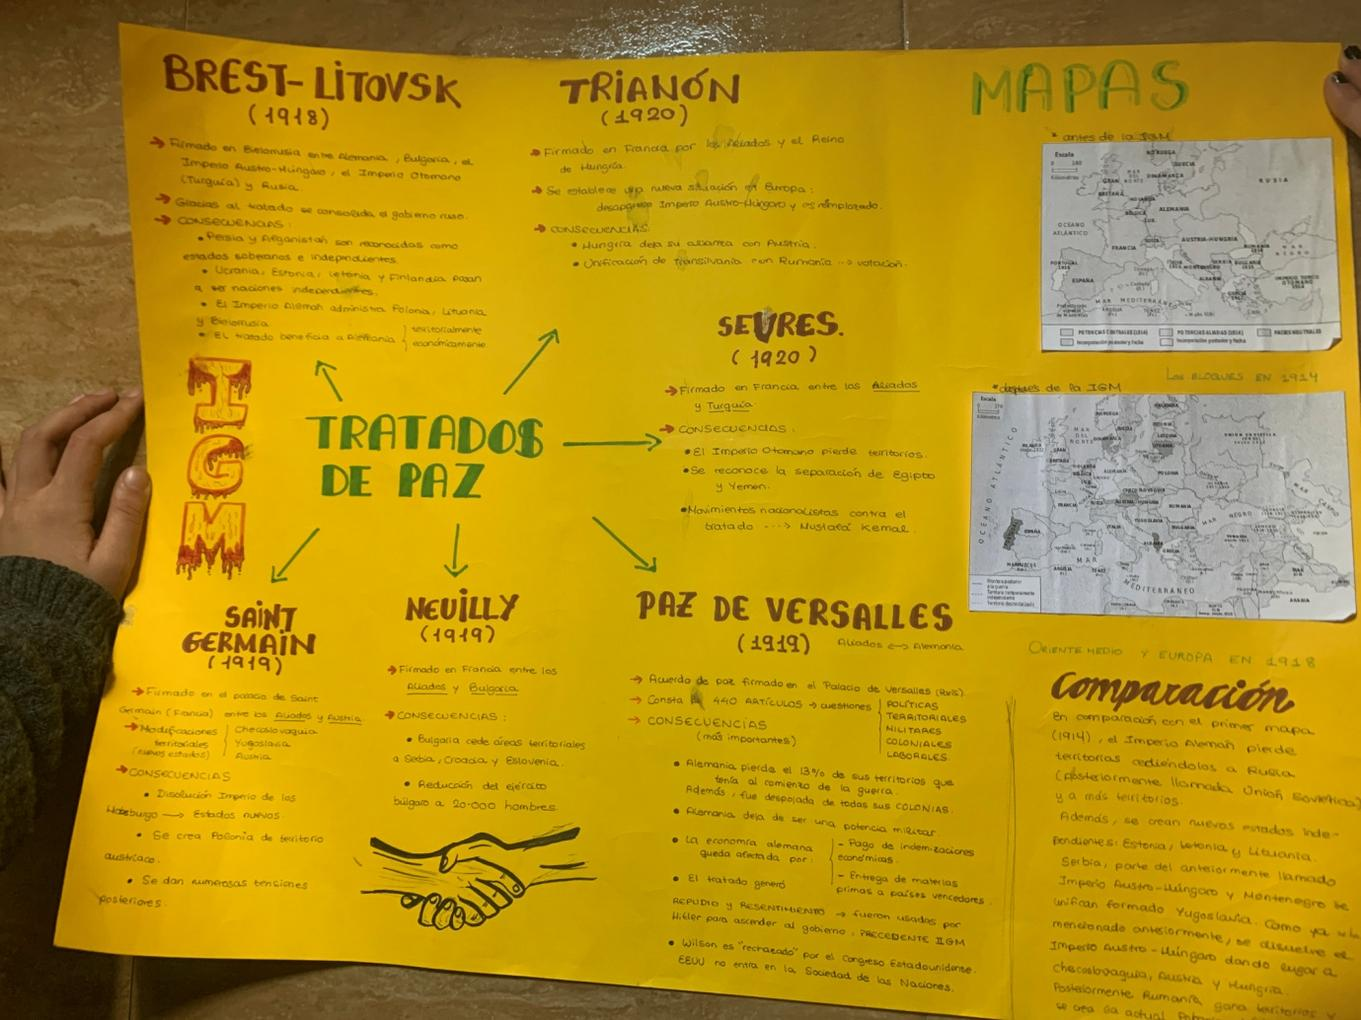 BREST-LITOVSK
(1918)
→ Firmado en Bielorrusia entre Alemania, Bulgaria, el
Imperio Austro-Húngaro, el Imperio Otomano
(Turquía) y Rusia.
→ Gracias al tratado se consolida el gobierno ruso.
→ CONSECUENCIAS:
• Persia y Afganistán son reconocidas como
estados soberanos e independientes.
• Ucrania, Estonia, Letonia y Finlandia pasan
a ser naciones independientes.
• El Imperio Alemán administra Polonia, Lituania
y Bielorrusia.
• El tratado beneficia a Alemania { territorialmente
económicamente
TRIANÓN
(1920)
→ Firmado en Francia por los Aliados y el Reino
de Hungría.
→ Se establece una nueva situación en Europa:
desaparece Imperio Austro-Húngaro y es remplazado.
→ CONSECUENCIAS:
• Hungría deja su alianza con Austria.
• Unificación de Transilvania con Rumanía --→ votación.
SEVRES.
(1920)
→ Firmado en Francia entre los Aliados
y Turquía.
→ CONSECUENCIAS:
• El Imperio Otomano pierde territorios.
• Se reconoce la separación de Egipto
y Yemen.
• Movimientos nacionalistas contra el
tratado ---→ Mustafá Kemal.
IGM
TRATADOS
DE PAZ
SAINT
GERMAIN
(1919)
→ Firmado en el palacio de Saint
Germain (Francia) entre los Aliados y Austria
→ Modificaciones
territoriales
(nuevos estados)
Checoslovaquia
Yugoslavia
Austria
→ CONSECUENCIAS
• Disolución Imperio de los
Habsburgo → Estados nuevos.
• Se crea Polonia de territorio
austríaco.
• Se dan numerosas tensiones
posteriores.
NEUILLY
(1919)
→ Firmado en Francia entre los
Aliados y Bulgaria
→ CONSECUENCIAS:
• Bulgaria cede áreas territoriales
a Serbia, Croacia y Eslovenia.
• Reducción del ejército
búlgaro a 20.000 hombres.
PAZ DE VERSALLES
(1919) Aliados ↔ Alemania
→ Acuerdo de paz firmado en el Palacio de Versalles (París)
→ Consta 440 ARTÍCULOS → cuestiones
POLÍTICAS
TERRITORIALES
MILITARES
COLONIALES
LABORALES
→ CONSECUENCIAS
(más importantes)
• Alemania pierde el 13% de sus territorios que
tenía al comienzo de la guerra.
Además, fue despojada de todas sus COLONIAS.
• Alemania deja de ser una potencia militar.
• La economía alemana
queda afectada por:
- Pago de indemnizaciones
económicas.
- Entrega de materias
primas a países vencedores.
• El tratado generó
REPUDIO y RESENTIMIENTO → fueron usados por
Hitler para ascender al gobierno: PRECEDENTE IIGM
• Wilson es "rechazado" por el Congreso Estadounidense.
EEUU no entra en la Sociedad de las Naciones.
MAPAS
* antes de la IGM
Escala
NORUEGA
SUECIA
RUSIA
MAR DEL NORTE
DINAMARCA
GRAN BRETAÑA
HOLANDA
BÉLGICA
ALEMANIA
LUX.
OCEANO ATLÁNTICO
FRANCIA
SUIZA
AUSTRIA-HUNGRIA
RUMANIA
PORTUGAL
ESPAÑA
SERBIA
BULGARIA
MONTENEGRO
ALBANIA
GRECIA
MAR NEGRO
IMPERIO TURCO OTOMANO
MAR MEDITERRÁNEO
POTENCIAS CENTRALES (1914)
POTENCIAS ALIADAS (1914)
PAÍSES NEUTRALES
Incorporación posterior y fecha
Incorporación posterior y fecha
LOS BLOQUES EN 1914
* después de la IGM
OCEANO ATLÁNTICO
MAR DEL NORTE
UNION SOVIETICA
ALEMANIA
POLONIA
FRANCIA
RUMANIA
ESPAÑA
ITALIA
YUGOSLAVIA
BULGARIA
MAR NEGRO
MAR CASPIO
MARRUECOS
MAR MEDITERRÁNEO
ARABIA
ORIENTE MEDIO Y EUROPA EN 1918
Comparación
En comparación con el primer mapa
(1914), el Imperio Alemán pierde
territorios cediéndolos a Rusia
(posteriormente llamada Unión Soviética)
y a más territorios.
Además, se crean nuevos estados inde-
pendientes: Estonia, Letonia y Lituania.
Serbia, parte del anteriormente llamado
Imperio Austro-Húngaro y Montenegro se
unifican formado Yugoslavia. Como ya
mencionado anteriormente, se disuelve el
Imperio Austro-Húngaro dando lugar a
Checoslovaquia, Austria y Hungría.
Posteriormente Rumanía gana territorios y
se crea la actual